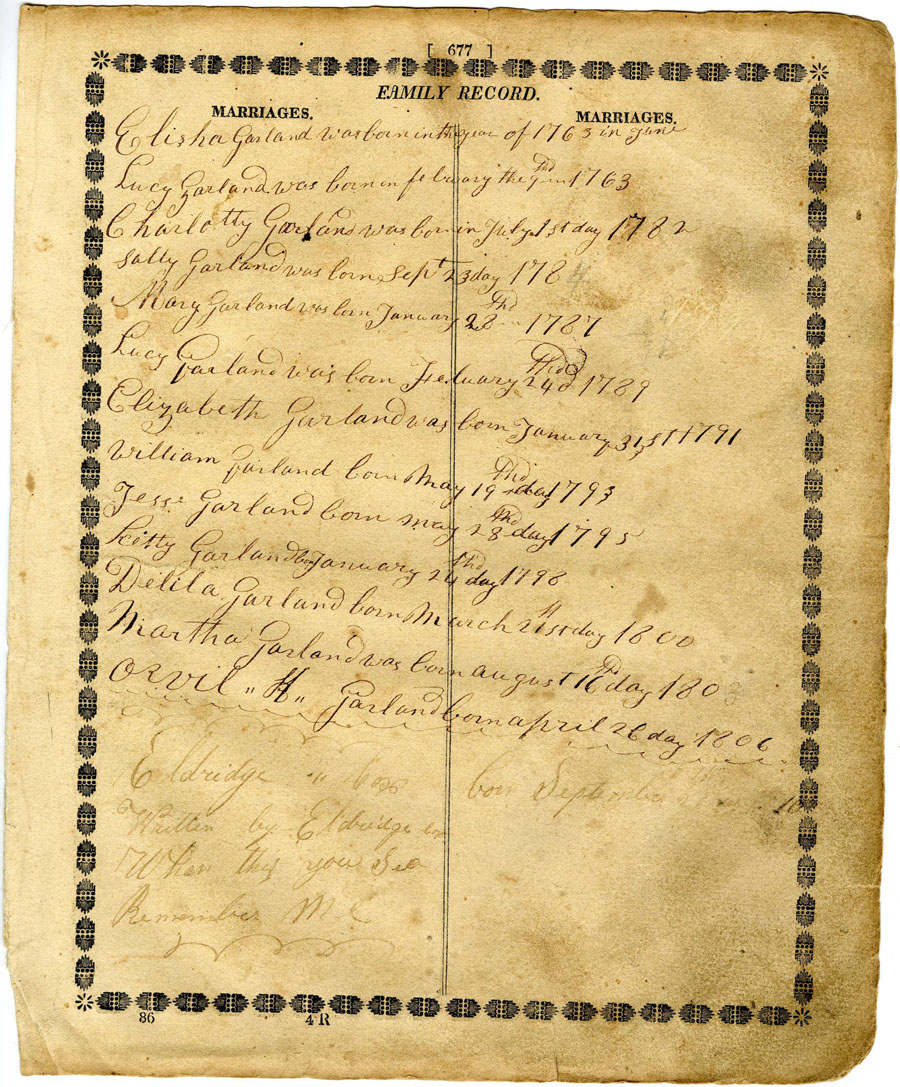 [ 677 ]
FAMILY RECORD.
MARRIAGES. MARRIAGES.
Elisha Garland was born in the year of 1763 in June
Lucy Garland was born in february the 1763
Charlotty Garland was born in July 1st day 1782
Sally Garland was born Sept 23 day 1784
Mary Garland was born January 28 thd 1787
Lucy Garland was born Feduary 24 thd 1789
Elizabeth Garland was born January 31st 1791
William Garland born May 19 thd day 1793
Jesse Garland born may 28 thd day 1795
Kitty Garland January 24 thd day 1798
Delila Garland born March 21st day 1800
Martha Garland was born august 16 day 180
Orvil "H" Garland born april 26 day 1806
Eldridge born September
Written by Eldridge
When this you See
Remember Me
86 4 R